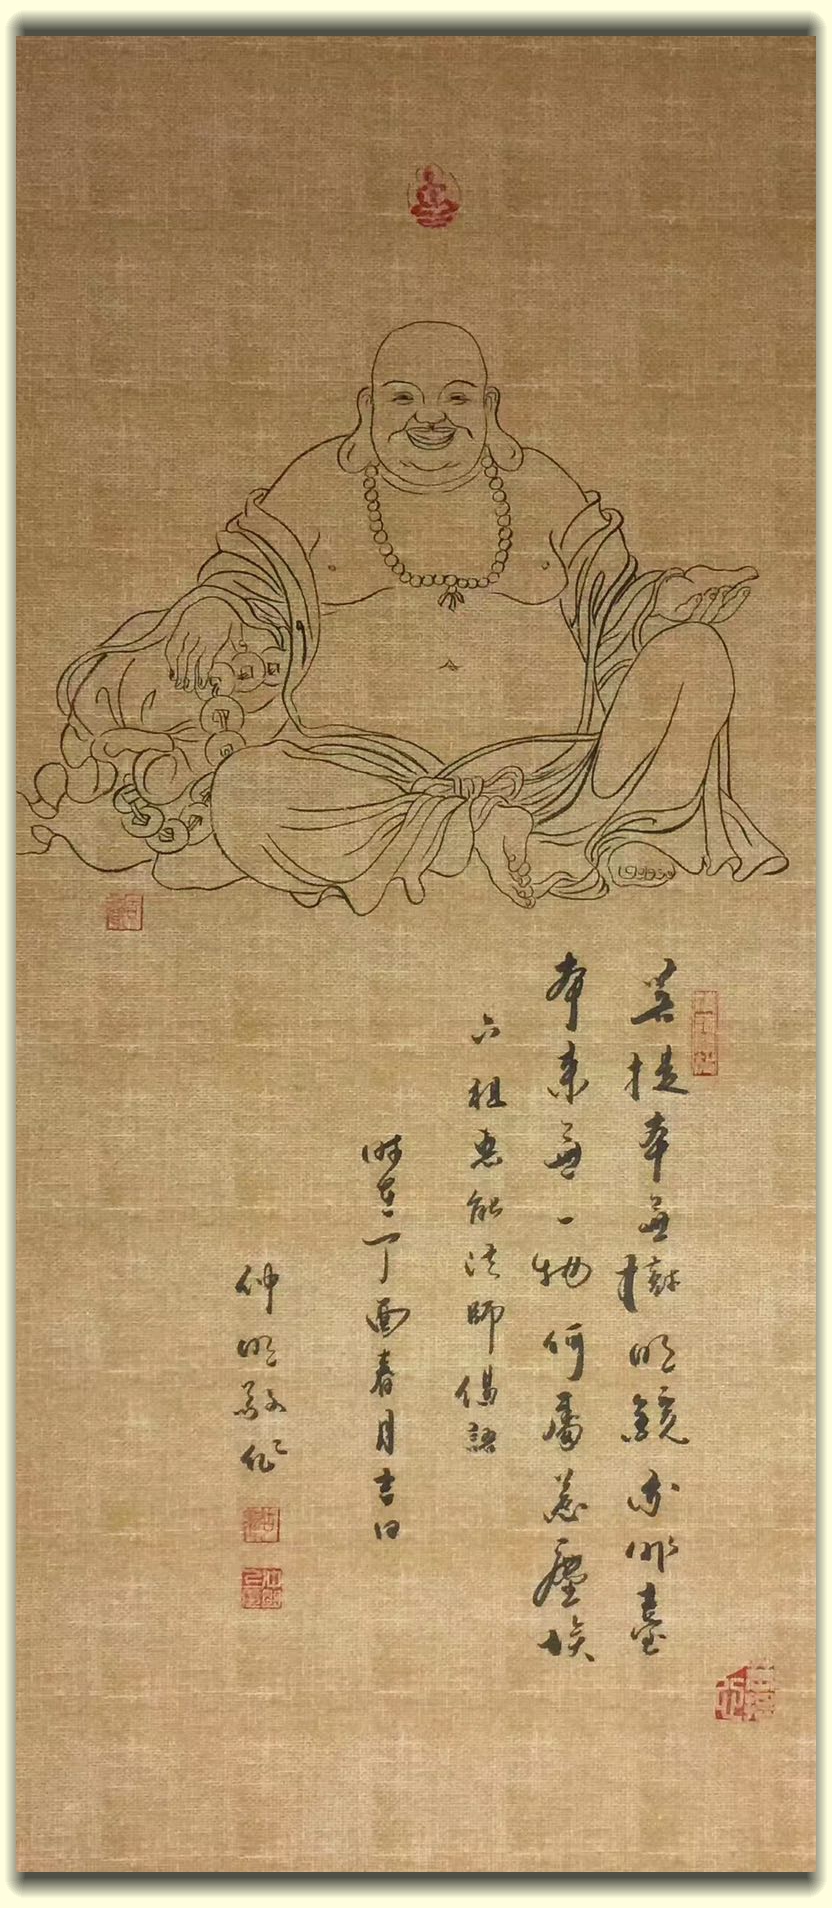 菩提本無樹明鏡亦非臺
本来無一物何處惹塵埃
六祖惠能法師偈語
時在丁酉春月吉日
仲明敬作